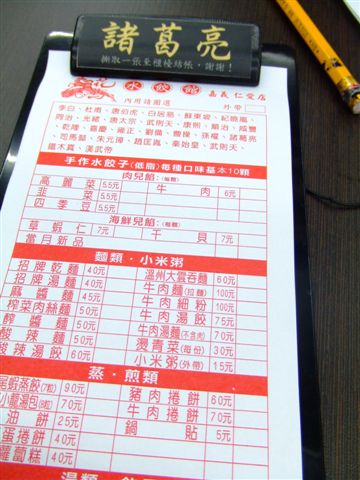 諸葛亮
撕取一張至櫃檯結帳,謝謝!
水餃館
嘉義 仁愛店
內用請圈選
外帶
李白、杜甫、唐伯虎、白居易、蘇東坡、紀曉嵐、
同治、光緒、唐太宗、武則天、康熙、順治、咸豐
、乾隆、嘉慶、雍正、劉備、曹操、孫權、諸葛亮
、司馬懿、朱元璋、趙匡胤、秦始皇、武則天、
鐵木真、漢武帝
手作水餃子(低脂)每種口味基本10顆
肉兒餡:(每顆)
高麗菜 5.5元 牛肉 6元
韭菜 5.5元
四季豆 5.5元
海鮮兒餡:(每顆)
草蝦仁 7元 干貝 7元
當月新品
麵類・小米粥
招牌乾麵 40元 溫州大雲吞麵 60元
招牌湯麵 40元 牛肉麵(拉麵) 100元
麻醬麵 45元 牛肉細粉 100元
榨菜肉絲麵 50元 牛肉湯餃 75元
炸醬麵 50元 牛肉湯麵(不含肉) 70元
酸辣麵 50元 燙青菜(每份) 30元
酸辣湯餃 60元 小米粥(外帶) 15元
蒸・煎類
鮮蝦蒸餃(7粒) 90元 豬肉捲餅 60元
小籠湯包(8粒) 70元 牛肉捲餅 70元
油餅 25元 鍋貼 5元
蛋捲餅 40元
蘿蔔糕 40元
湯類